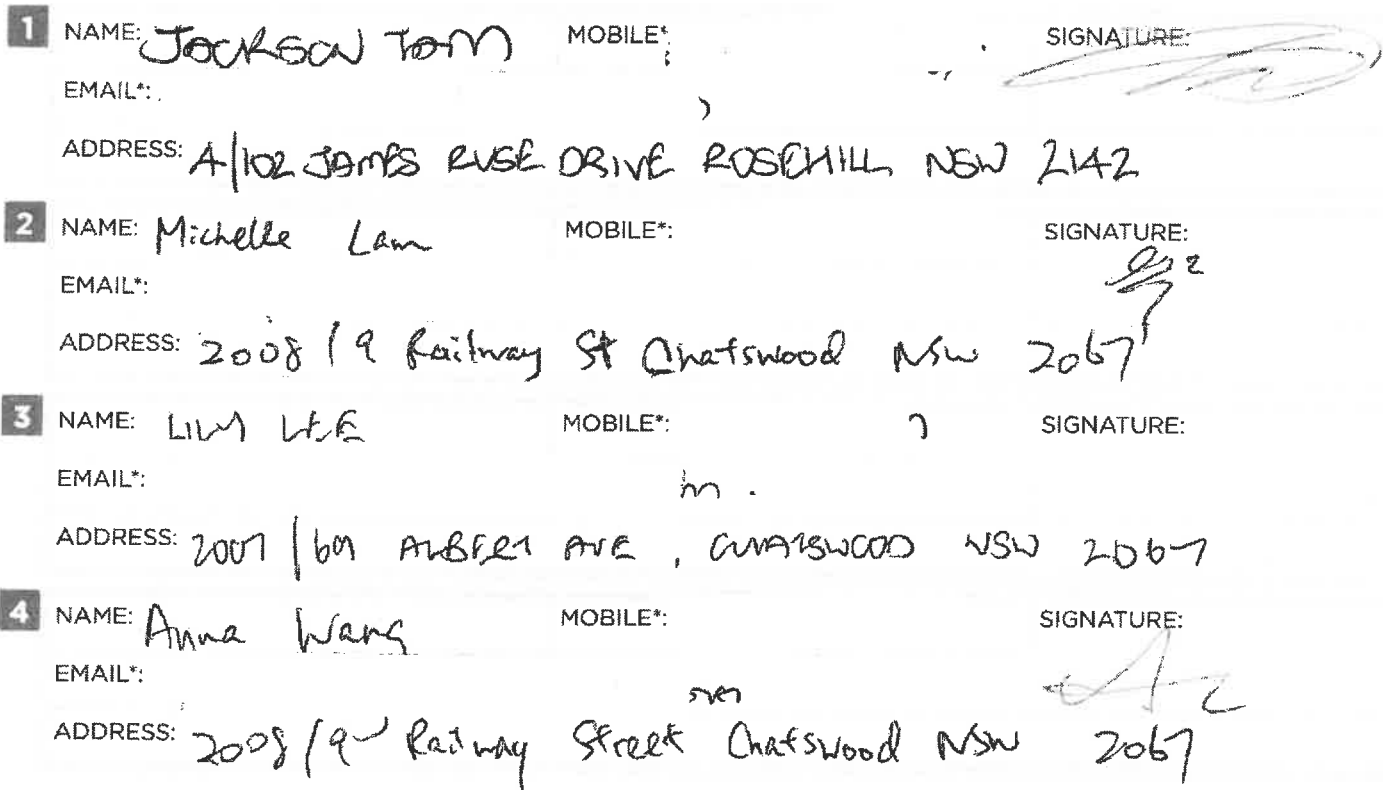 1 NAME: JACKSON TOM MOBILE*: SIGNATURE:
EMAIL*:
ADDRESS: A/102 JAMES RUSE DRIVE ROSEHILL NSW 2142
2 NAME: Michelle Lam MOBILE*: SIGNATURE:
EMAIL*:
ADDRESS: 2008 / 9 Railway St Chatswood NSW 2067
3 NAME: LILY LEE MOBILE*: SIGNATURE:
EMAIL*:
ADDRESS: 2007 / ALBERT AVE, CHATSWOOD NSW 2067
4 NAME: Anna Wang MOBILE*: SIGNATURE:
EMAIL*:
ADDRESS: 2008 / 9 Railway Street Chatswood NSW 2067